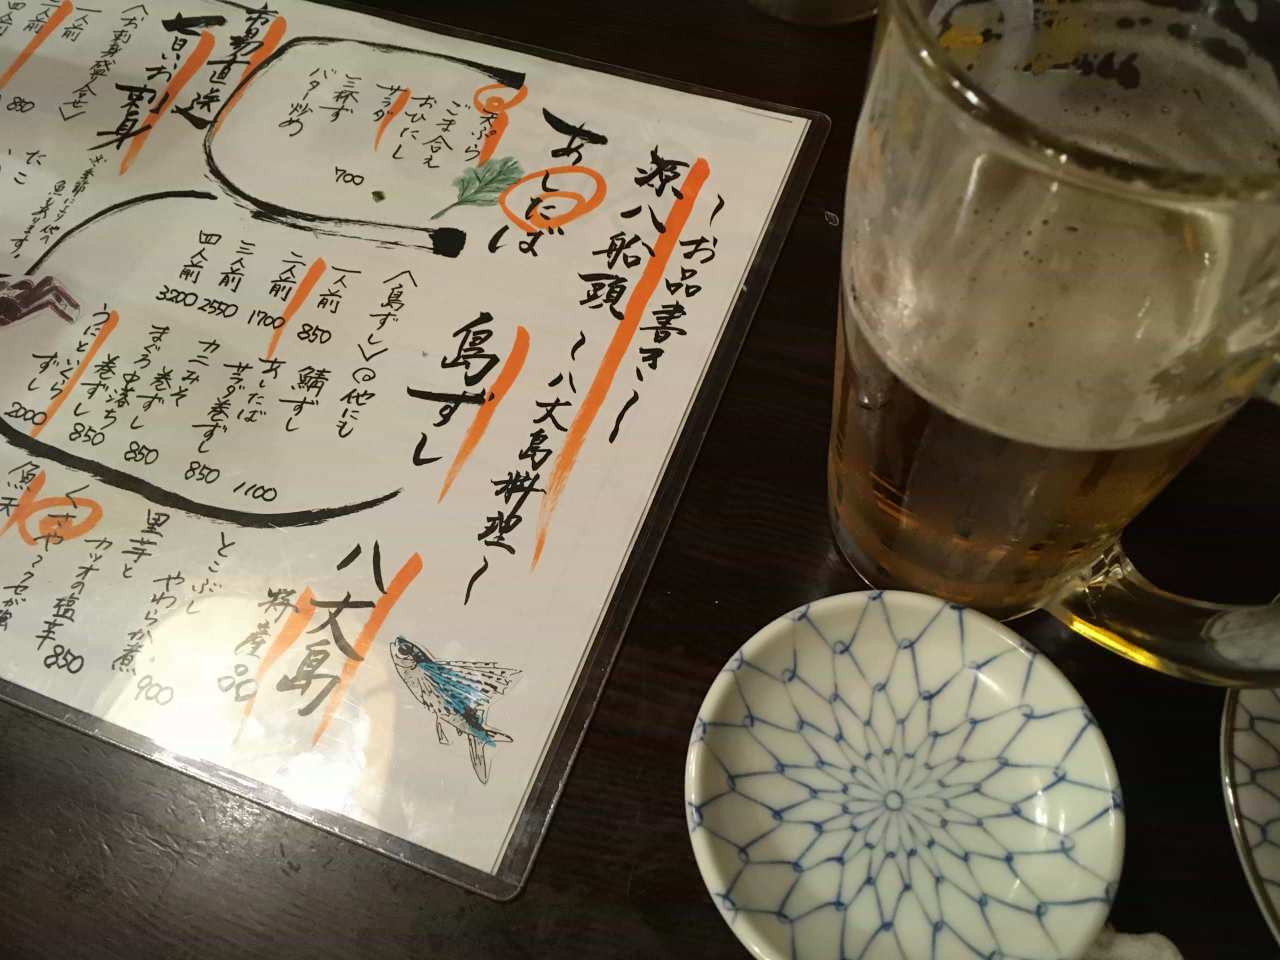 〜お品書き〜
源八船頭
〜八丈島料理〜
あしたば
天ぷら
ごま合え
おひたし
サラダ
三杯ず
バター炒め
700
島ずし
〈島ずし〉
一人前 850
二人前 1700
三人前 2550
四人前 3200
他にも
鯖ずし 1100
あしたば
サラダ巻ずし 850
カニみそ
巻ずし 850
まぐろ中落ち
巻ずし 850
うにといくら
ずし 2000
八丈島
特産品
とこぶし
やわらか煮 900
里芋と
カツオの塩辛 850
くさや
魚天
市場直送
旨いお刺身
〈お刺身盛合せ〉
一人前
二人前
四人前
たこ